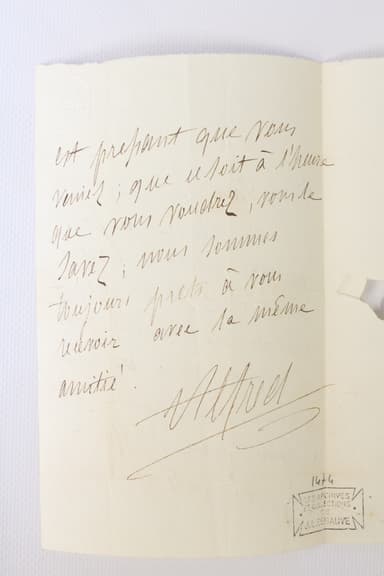 est pressant que vous
veniez ; que ce soit à l'heure
que vous voudrez, vous le
savez ; nous sommes
toujours prêts à vous
recevoir avec la même
amitié.
Alfred
1474
LES ARCHIVES
COLLECTIONS
DE